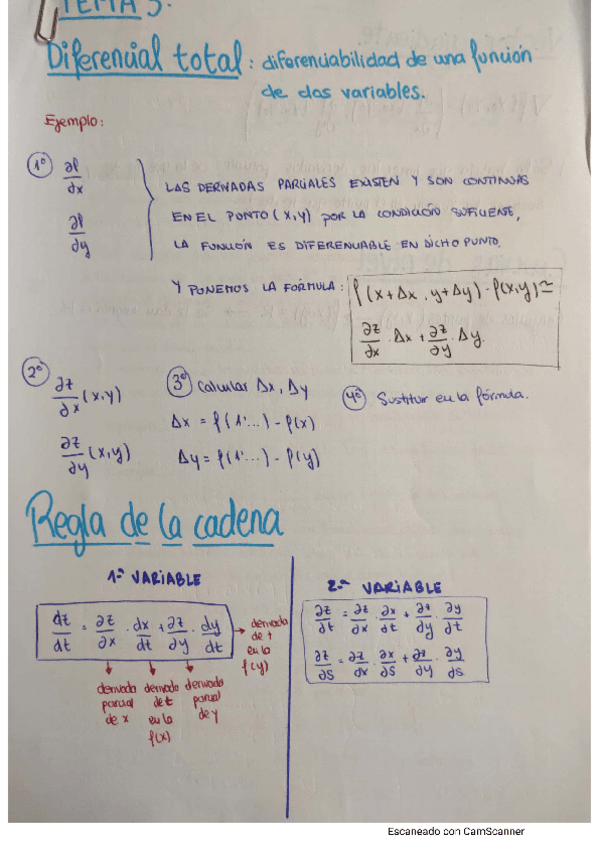 TEMA 3.
Diferencial total: diferenciabilidad de una función
de dos variables.
Ejemplo:
1º ∂f/dx
∂f/dy
LAS DERIVADAS PARCIALES EXISTEN Y SON CONTINUAS
EN EL PUNTO (X,Y) POR LA CONDICIÓN SUFICIENTE,
LA FUNCIÓN ES DIFERENCIABLE EN DICHO PUNTO.
Y PONEMOS LA FÓRMULA:
f(x+Δx, y+Δy) - f(x,y) ≃
∂z/dx · Δx + ∂z/∂y · Δy.
2º ∂z/∂x (x,y)
∂z/∂y (x,y)
3º Calcular Δx, Δy
Δx = f(1'...) - f(x)
Δy = f(1'...) - f(y)
4º Sustituir en la fórmula.
Regla de la cadena
1.ª VARIABLE
dz/dt = ∂z/∂x · dx/dt + ∂z/∂y · dy/dt
→ derivada
de t
en la
f(y)
derivada
parcial
de x
derivada
de t
en la
f(x)
derivada
parcial
de y
2.ª VARIABLE
∂z/∂t = ∂z/∂x · ∂x/∂t + ∂z/∂y · ∂y/∂t
∂z/∂s = ∂z/dx · ∂x/∂s + ∂z/∂y · ∂y/∂s
Escaneado con CamScanner